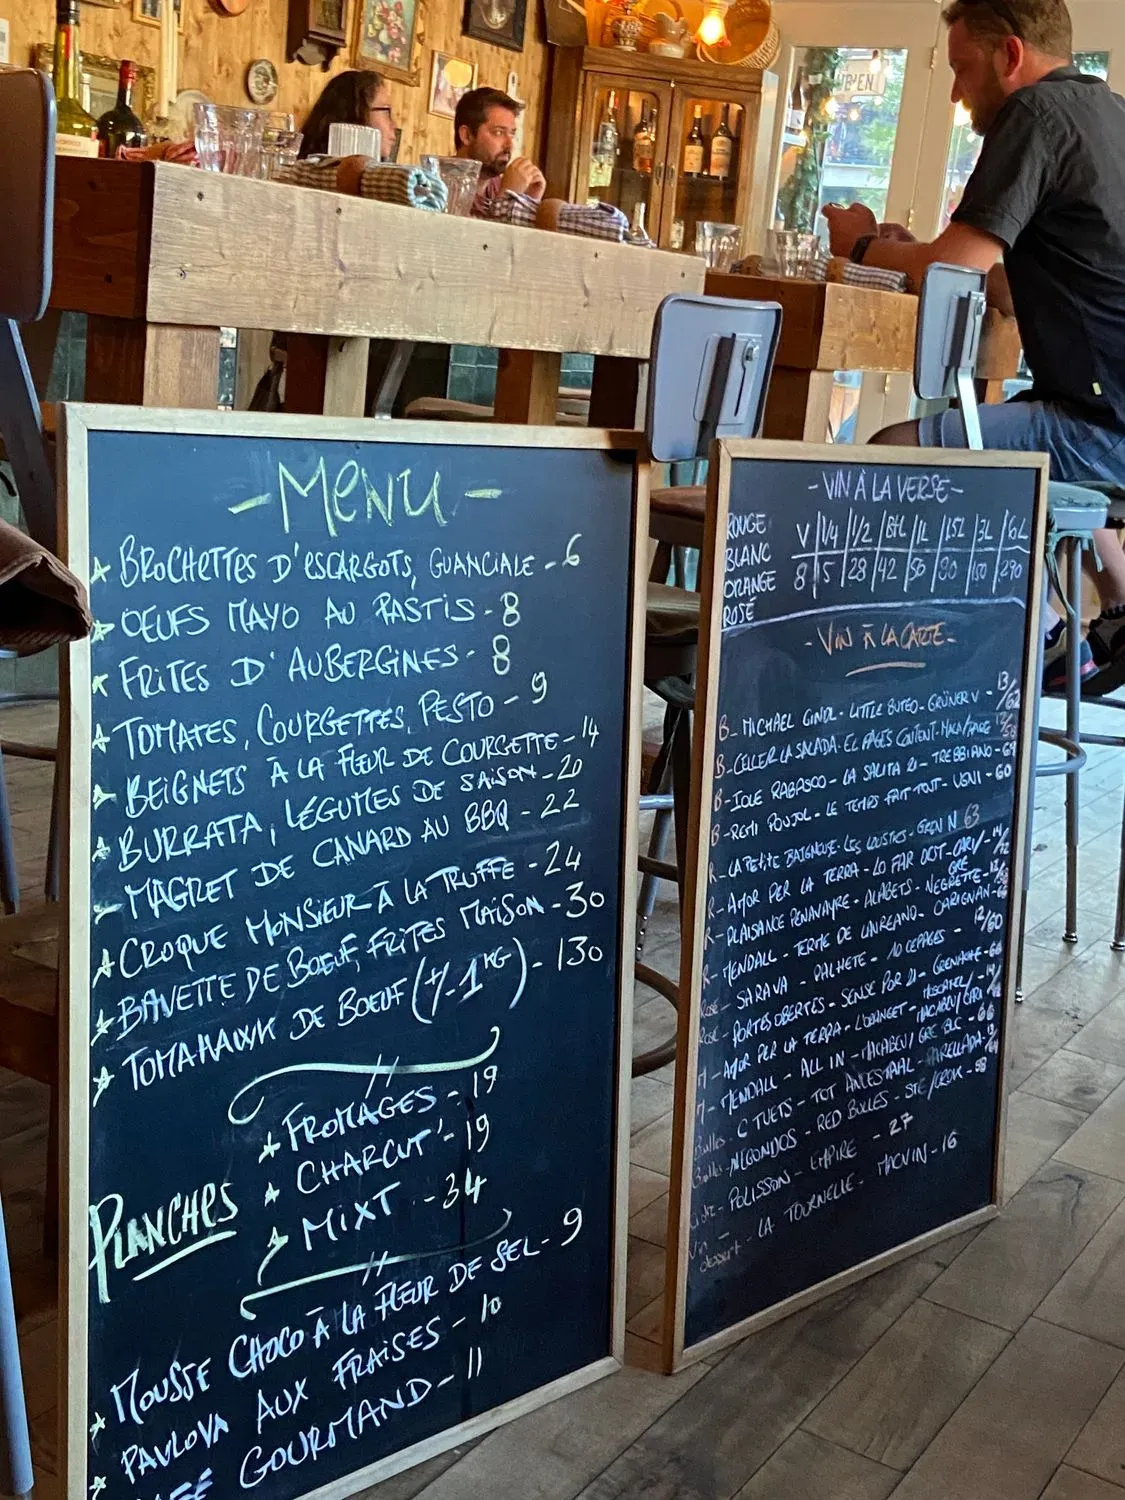 -MENU-
BROCHETTES D'ESCARGOTS, GUANCIALE - 6
OEUFS MAYO AU PASTIS - 8
FRITES D'AUBERGINES - 8
TOMATES, COURGETTES, PESTO - 9
BEIGNETS À LA FLEUR DE COURGETTE - 14
BURRATA, LÉGUMES DE SAISON - 20
MAGRET DE CANARD AU BBQ - 22
CROQUE MONSIEUR À LA TRUFFE - 24
BAVETTE DE BOEUF, FRITES MAISON - 30
TOMAHAWK DE BOEUF (+/- 1KG) - 130
PLANCHES
FROMAGES - 19
CHARCUT' - 19
MIXT - 34
MOUSSE CHOCO À LA FLEUR DE SEL - 9
PAVLOVA AUX FRAISES - 10
GOURMAND - 11
-VIN À LA VERSE-
ROUGE
BLANC
ORANGE
ROSÉ
V 1/4 1/2 BTL 1L 1.5L 3L 6L
8 15 28 42 56 80 150 290
-VIN À LA CARTE-
B - MICHAEL GINDL - LITTLE BUTEO - GRÜNER V - 13/62
B - CELLER LA SALADA - EL PAGÈS CONTENT -
B - IOLE RABASCO - LA SALITA 21 - TREBBIANO - 64
B - REMI POUJOL - LE TEMPS FAIT TOUT - 60
R - LA PETITE BAIGNEUSE - LES LOUSTICS - GREN N 63
R - AMOR PER LA TERRA - LO FAR DOT -
R - PLAISANCE PENAVAYRE - ALAGETS - NEGRETTE -
R - MENDALL - TERME DE - CARIGNAN -
ROSÉ - SARAVA - PALHETE - 10 CEPAGES - 12/60
ROSÉ - PORTES OBERTES - SENSE POR 21 - GRENACHE -
M - AMOR PER LA TERRA -
M - MENDALL - ALL IN - MACABEU/
Bulles - C TUETS - TOT ANCESTRAL -
Bulles - NEGONDOS - RED BULLES -
POLISSON - EMPIRE - 27
Vin dessert - LA TOURNELLE - MACVIN - 16